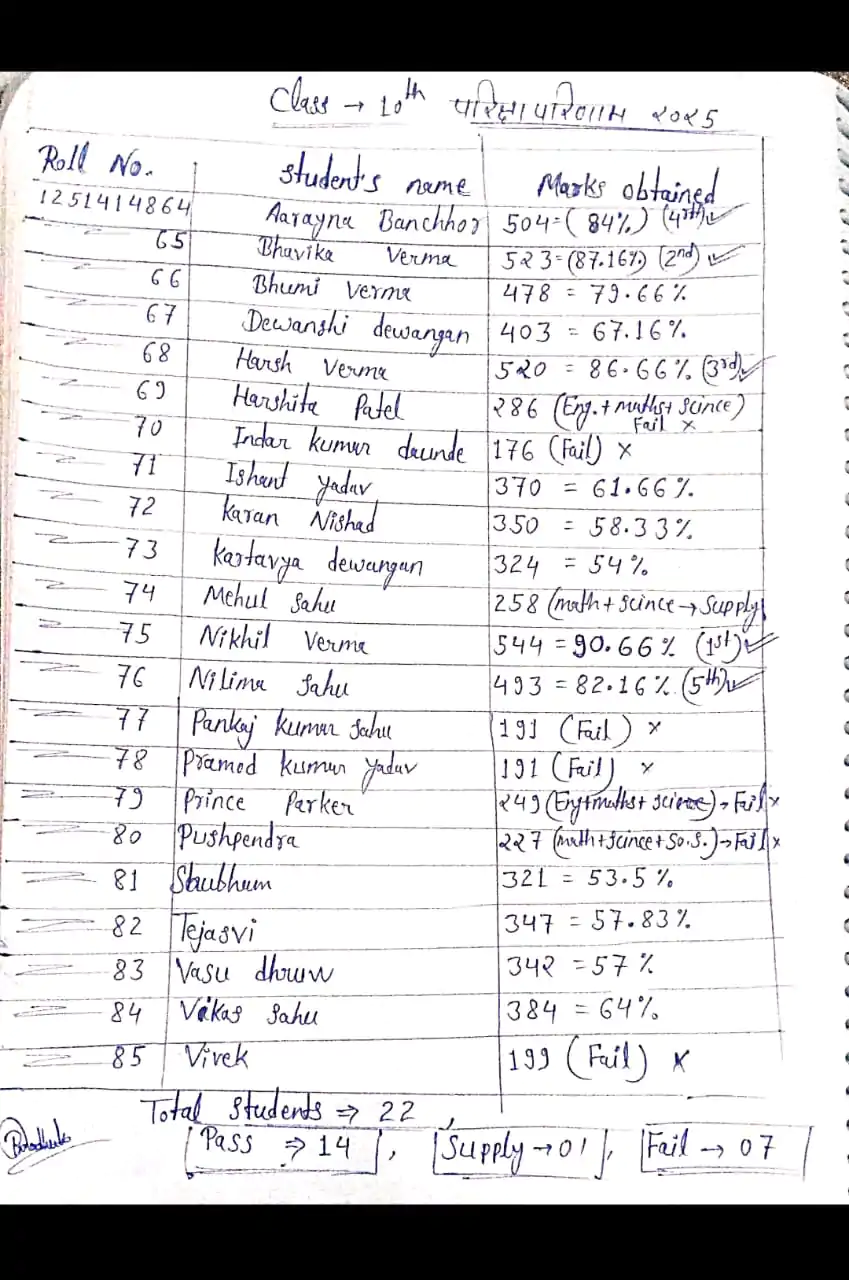 Class → 10th परिक्षा परिणाम २०२5
Roll No. Student's name Marks obtained
1251414864 Aarayna Banchhor 504=(84%) (4rth)✓
65 Bhavika Verma 523=(87.16%) (2nd) ✓
66 Bhumi Verma 478 = 79.66%
67 Dewanshi dewangan 403 = 67.16%
68 Harsh Verma 520 = 86.66% (3rd)✓
69 Harshita Patel 286 (Eng.+maths+Scince)
Fail ×
70 Indar kumar daunde 176 (Fail) ×
71 Ishant yadav 370 = 61.66%
72 Karan Nishad 350 = 58.33%
73 Kartavya dewangan 324 = 54%
74 Mehul Sahu 258 (math+scince→Supply
75 Nikhil Verma 544=90.66% (1st)✓
76 Nilima Sahu 493=82.16% (5th)✓
77 Pankaj kumar Sahu 191 (Fail) ×
78 Pramod kumar yadav 191 (Fail) ×
79 Prince Parker 249(Eng+maths+science)→Fail×
80 Pushpendra 227 (math+scince+So.S.)→Fail×
81 Shubhum 321 = 53.5%
82 Tejasvi 347 = 57.83%
83 Vasu dhruw 342 =57%
84 Vikas Sahu 384 =64%
85 Vivek 199 (Fail) ×
Total Students ⇒ 22,
Pass ⇒ 14, Supply→01, Fail → 07